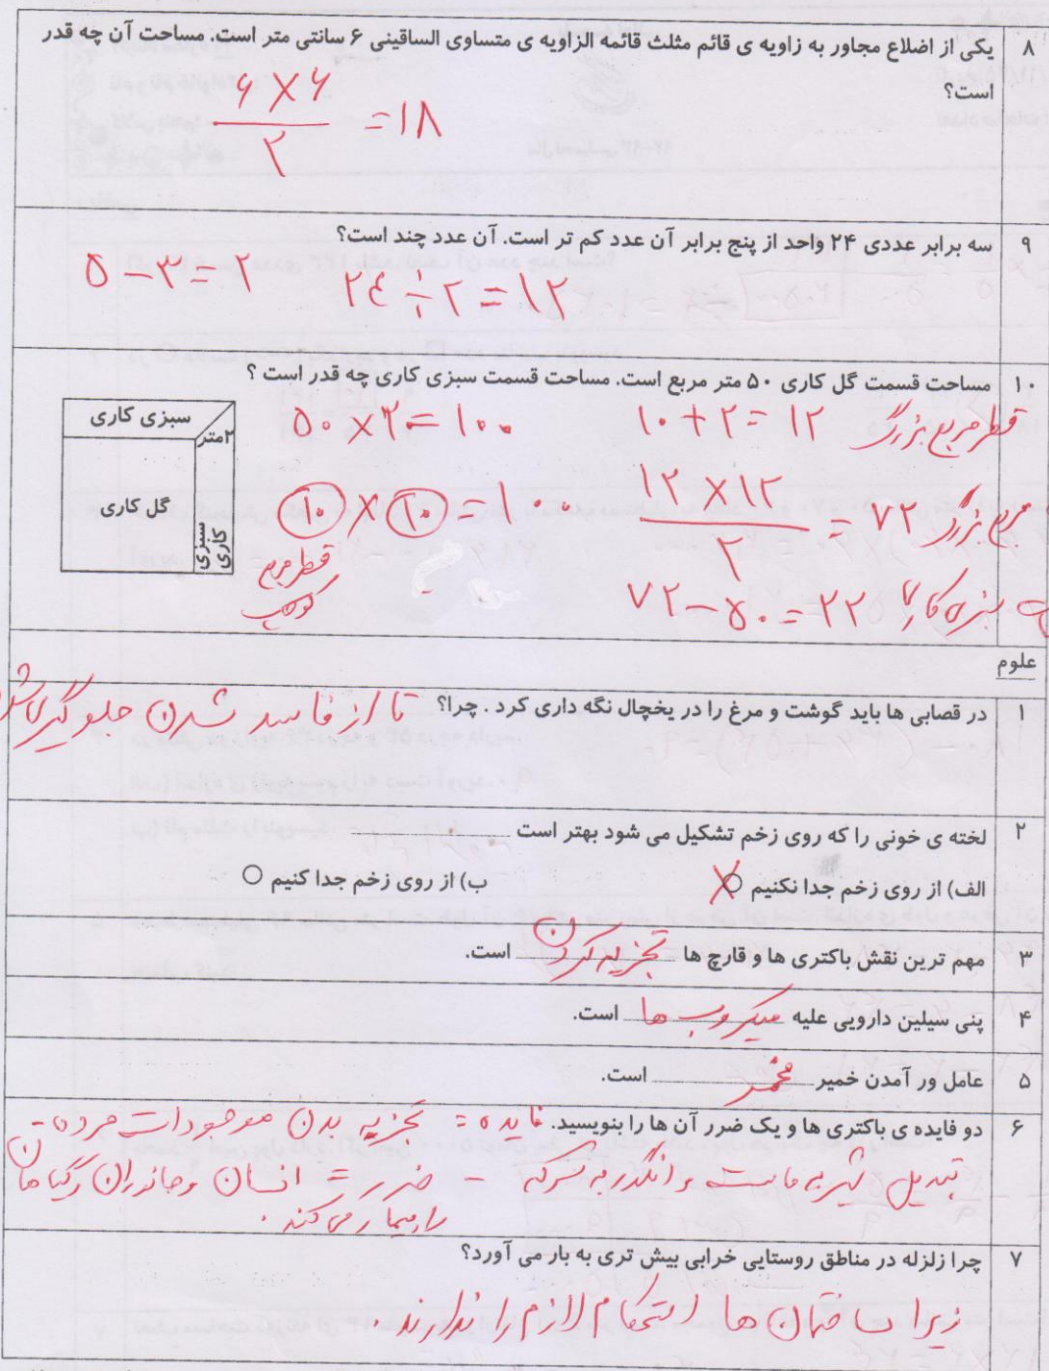 ۸ یکی از اضلاع مجاور به زاویه ی قائم مثلث قائمه الزاویه ی متساوی الساقینی ۶ سانتی متر است. مساحت آن چه قدر
است؟
۶ × ۶ / ۲ = ۱۸
۹ سه برابر عددی ۲۴ واحد از پنج برابر آن عدد کم تر است. آن عدد چند است؟
۵ - ۳ = ۲ ۲۴ ÷ ۲ = ۱۲
۱۰ مساحت قسمت گل کاری ۵۰ متر مربع است. مساحت قسمت سبزی کاری چه قدر است ؟
سبزی کاری
۲متر
گل کاری
سبزی
کاری
۵۰ × ۲ = ۱۰۰
قطر مربع بزرگ ۱۰ + ۲ = ۱۲
۱۰ × ۱۰ = ۱۰۰
قطر مربع
کوچک
مربع بزرگ ۱۲ × ۱۲ / ۲ = ۷۲
سبزی کاری ۷۲ - ۵۰ = ۲۲
علوم
۱ در قصابی ها باید گوشت و مرغ را در یخچال نگه داری کرد . چرا؟ تا از فاسد شدن جلوگیری شود
۲ لخته ی خونی را که روی زخم تشکیل می شود بهتر است
الف) از روی زخم جدا نکنیم ب) از روی زخم جدا کنیم
۳ مهم ترین نقش باکتری ها و قارچ ها تجزیه کردن است.
۴ پنی سیلین دارویی علیه میکروب ها است.
۵ عامل ور آمدن خمیر مخمر است.
۶ دو فایده ی باکتری ها و یک ضرر آن ها را بنویسید. فایده = تجزیه بدن موجودات مرده -
تبدیل شیر به ماست و انگور به سرکه - ضرر = انسان و جانداران و گیاهان
را بیمار می کند .
۷ چرا زلزله در مناطق روستایی خرابی بیش تری به بار می آورد؟
زیرا ساختمان ها استحکام لازم را ندارند .